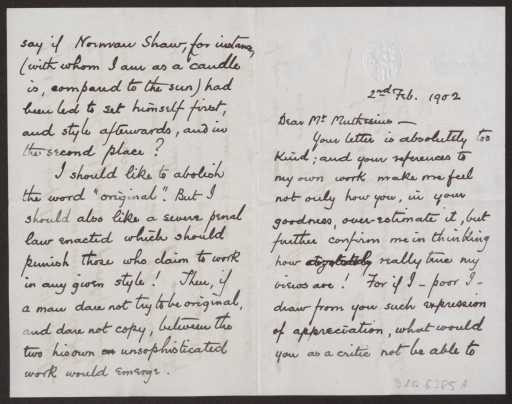 2nd Feb. 1902
Dear Mr Muthesius —
Your letter is absolutely too
kind; and your references to
my own work make me feel
not only how you, in your
goodness, over-estimate it, but
further confirm me in thinking
how really true my
views are! For if I – poor I –
draw from you such expression
of appreciation, what would
you as a critic not be able to
say if Norman Shaw, for instance,
(with whom I am as a candle
is, compared to the sun) had
been led to set himself first,
and style afterwards, and in
the second place?
I should like to abolish
the word "original". But I
should also like a severe penal
law enacted which should
punish those who claim to work
in any given style! Then, if
a man dare not try to be original,
and dare not copy, between the
two his own unsophisticated
work would emerge.